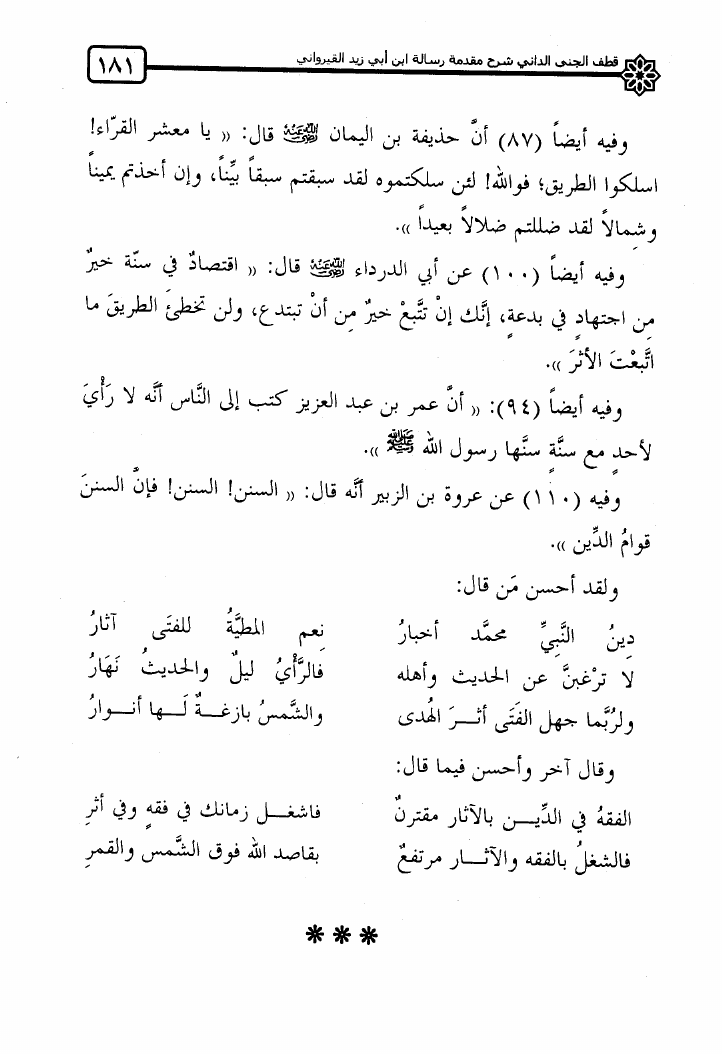 قطف الجنى الداني شرح مقدمة رسالة ابن أبي زيد القيرواني
١٨١
وفيه أيضاً (٨٧) أنَّ حذيفة بن اليمان رضي الله عنه قال: « يا معشر القرَّاء!
اسلكوا الطريق؛ فوالله! لئن سلكتموه لقد سبقتم سبقاً بيِّناً، وإن أخذتم يميناً
وشِمالاً لقد ضللتم ضلالاً بعيداً ».
وفيه أيضاً (١٠٠) عن أبي الدرداء رضي الله عنه قال: « اقتصادٌ في سنَّة خيرٌ
مِن اجتهادٍ في بدعةٍ، إنَّك إنْ تتَّبعْ خيرٌ مِن أنْ تبتدع، ولن تخطئَ الطريقَ ما
اتَّبعْتَ الأثرَ ».
وفيه أيضاً (٩٤): « أنَّ عمر بن عبد العزيز كتب إلى النَّاس أنَّه لا رَأْيَ
لأحدٍ مع سنَّةٍ سنَّها رسول الله ﷺ ».
وفيه (١١٠) عن عروة بن الزبير أنَّه قال: « السنن! السنن! فإنَّ السننَ
قوامُ الدِّين ».
ولقد أحسن مَن قال:
دِينُ النَّبِيِّ محمَّد أخبارُ نِعم المطيَّةُ للفتَى آثارُ
لا ترْغبنَّ عن الحديث وأهله فالرَّأيُ ليلٌ والحديثُ نَهَارُ
ولرُبَّما جهل الفتَى أثرَ الهُدى والشَّمسُ بازغةٌ لَها أنوارُ
وقال آخر وأحسن فيما قال:
الفقهُ في الدِّين بالآثار مقترنٌ فاشغل زمانك في فقهٍ وفي أثرِ
فالشغلُ بالفقه والآثار مرتفعٌ بقاصد الله فوق الشَّمس والقمرِ
***